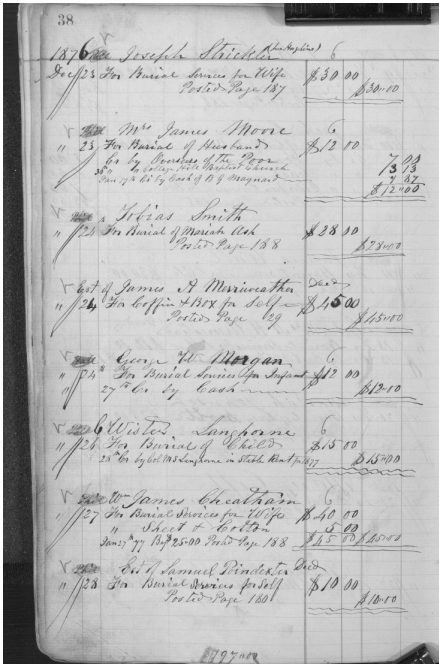 38
1876 Joseph Strickler 6
Dec 23 For Burial Services for Wife $30 00
Posted Page 187 $30.00
Mrs James Moore 6
" 23 For Burial of Husband $12 00
Cr by Overseers of the Poor
College Hill Baptist Church
Jan 17th Cr by Cash of B G Maynard
$12.00
Tobias Smith
" 24 For Burial of Mariah Ash $28 00
Posted Page 188 $28.00
Est of James A Merriweather Decd
" 24 For Coffin & Box for Self $45 00
Posted Page 29 $45.00
George W Morgan 6
" 24 For Burial Services for Infant $12 00
" 27th Cr by Cash $12.00
Wistar Langhorne 6
" 26 For Burial of Child $15 00
28th Cr by Col M S Langhorne in Stable Rent for 1877 $15.00
James Cheatham 6
" 27 For Burial Services for Wife $40 00
" Sheet & Cotton 5 00
Jany 77 By 25.00 Posted Page 188 $45 00 $45.00
Est of Samuel Poindexter Decd
" 28 For Burial Services for Self $10 00
Posted Page 180 $10.00